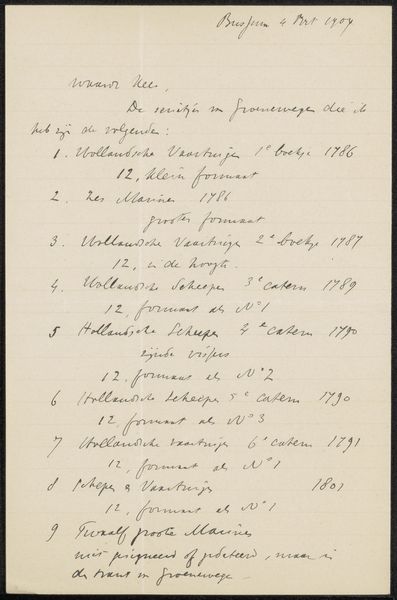 Bussum 4 Oct 1904
Waarde Kees,
De serietjes v Groenewegen die ik
heb zijn de volgende:
1. Hollandsche Vaartuigen 1e boekje 1786
12, klein formaat
2. Zes Marines 1786
grooter formaat
3. Hollandsche Vaartuigen 2e boekje 1787
12, in de hoogte.
4. Hollandsche Scheepen 3e catern 1789
12, formaat als No 1
5 Hollandsche Scheepen 4e catern 1790
zijnde visschers
12, formaat als No 2
6 Hollandsche Scheepen 5e catern 1790
12, formaat als No 3
7 Hollandsche vaartuigen 6e catern 1791
12, formaat als No 1
8 Schepen & Vaartuigen 1801
12, formaat als No 1
9 Twaalf groote Marines
niet gesigneerd of gedateerd, maar in
de trant v Groenewegen